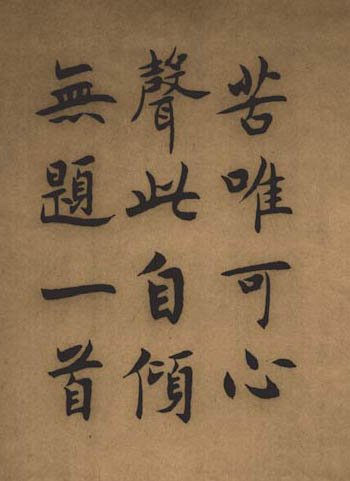 苦唯可心
聲此自傾
無題一首